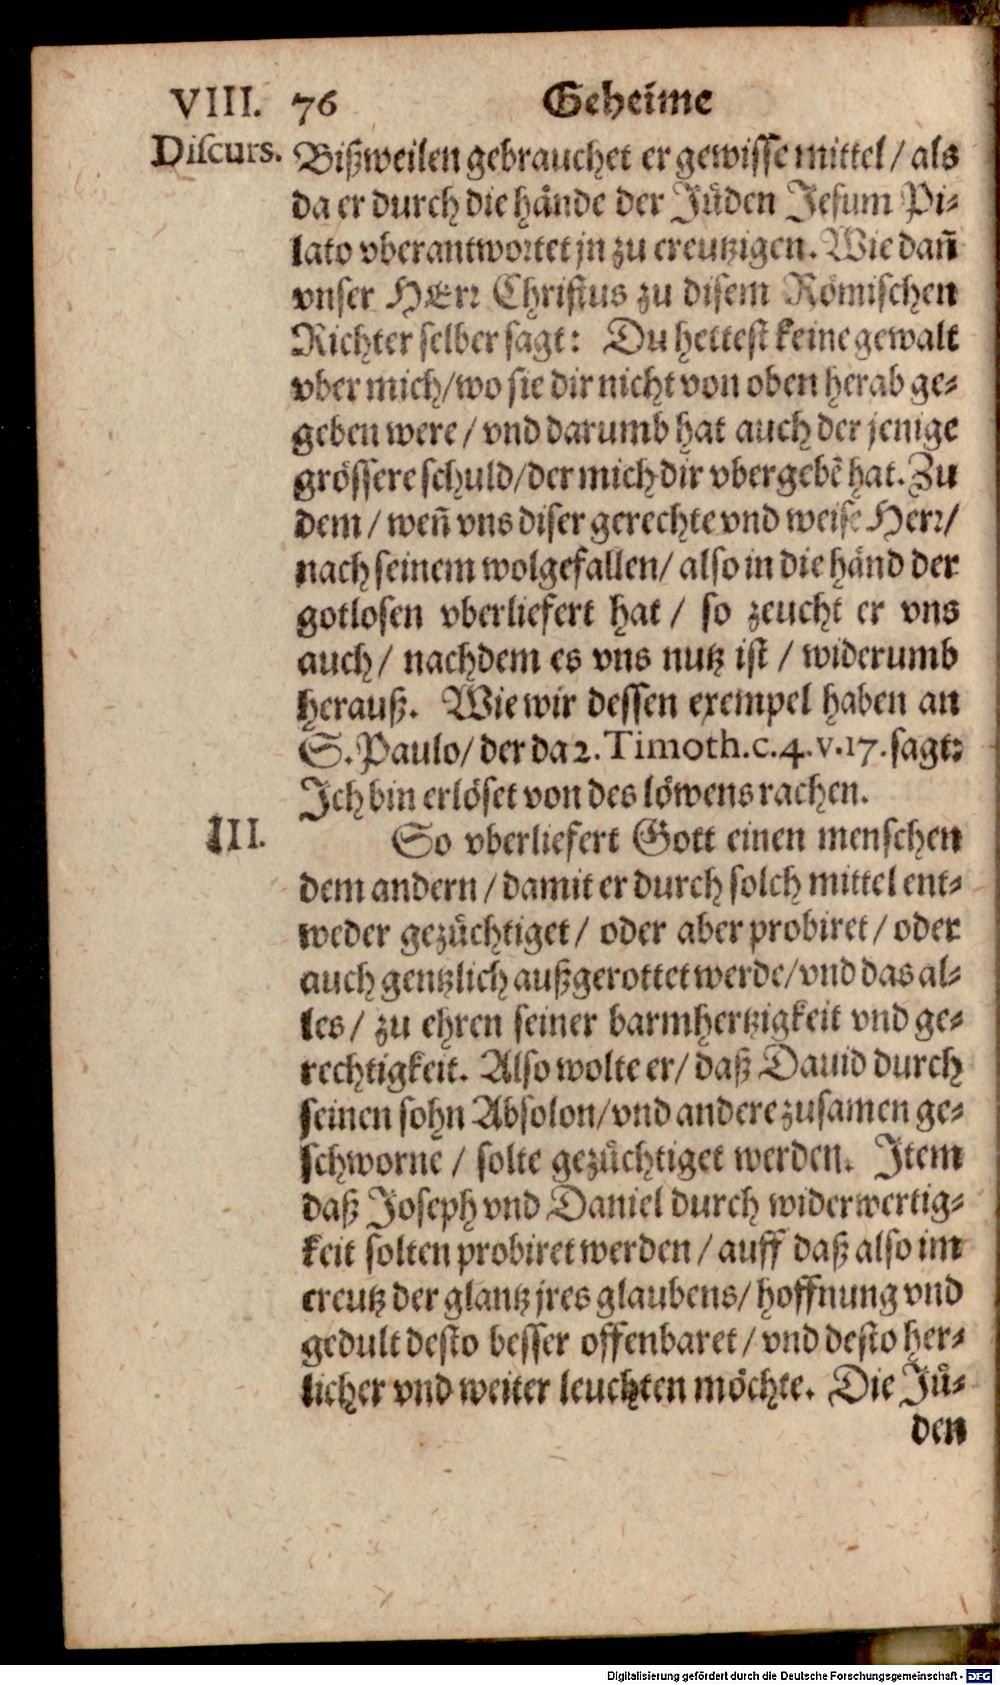 VIII. 76 Geheime
Discurs. Bißweilen gebrauchet er gewisse mittel / als
da er durch die hände der Jüden Jesum Pi-
lato vberantwortet jn zu creutzigen. Wie dañ
vnser HErr Christus zu disem Römischen
Richter selber sagt: Du hettest keine gewalt
vber mich/wo sie dir nicht von oben herab ge-
geben were / vnd darumb hat auch der jenige
grössere schuld/der mich dir vbergebẽ hat. Zu
dem / weñ vns diser gerechte vnd weise Herr/
nach seinem wolgefallen/ also in die händ der
gotlosen vberliefert hat / so zeucht er vns
auch/ nachdem es vns nutz ist / widerumb
herauß. Wie wir dessen exempel haben an
S. Paulo/ der da 2. Timoth. c. 4. v. 17. sagt:
Ich bin erlöset von des löwens rachen.
III. So vberliefert Gott einen menschen
dem andern / damit er durch solch mittel ent-
weder gezüchtiget / oder aber probiret / oder
auch gentzlich außgerottet werde/vnd das al-
les/ zu ehren seiner barmhertzigkeit vnd ge-
rechtigkeit. Also wolte er/ daß Dauid durch
seinen sohn Absolon/vnd andere zusamen ge-
schworne / solte gezüchtiget werden. Item
daß Joseph vnd Daniel durch widerwertig-
keit solten probiret werden / auff daß also im
creutz der glantz jres glaubens/ hoffnung vnd
gedult desto besser offenbaret / vnd desto her-
licher vnd weiter leuchten möchte. Die Jü-
den
Digitalisierung gefördert durch die Deutsche Forschungsgemeinschaft - DFG